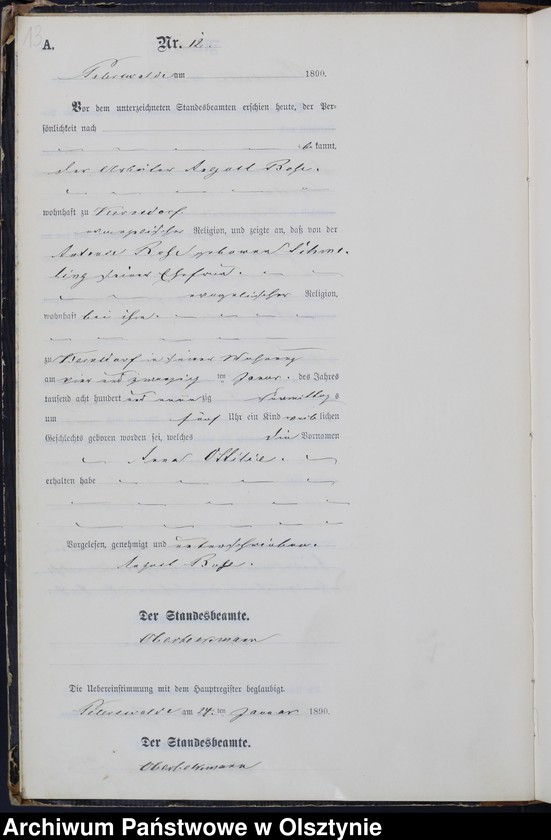 13
A.
Nr. 12.
am 1890.
Vor dem unterzeichneten Standesbeamten erschien heute, der Per-
sönlichkeit nach
kannt,
der Arbeiter August Bohs.
wohnhaft zu
evangelischer Religion, und zeigte an, daß von der
geborenen
seiner Ehefrau.
evangelischer Religion,
wohnhaft bei ihm.
zu in seiner Wohnung
am vier und zwanzig ten Januar des Jahres
tausend acht hundert und neunzig Vormittags
um fünf Uhr ein Kind weiblichen
Geschlechts geboren worden sei, welches die Vornamen
Anna Ottilie.
erhalten habe
Vorgelesen, genehmigt und unterschrieben.
August
Der Standesbeamte.
Die Uebereinstimmung mit dem Hauptregister beglaubigt.
am ten Januar 1890.
Der Standesbeamte.
Archiwum Państwowe w Olsztynie